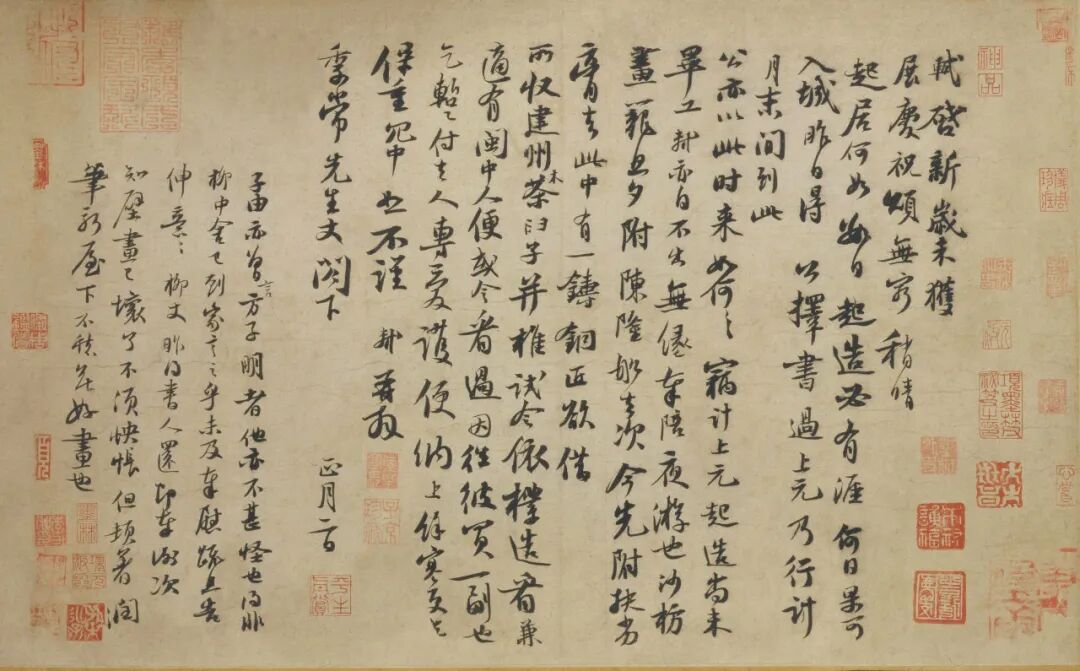 神品
軾啓新歲未獲
展慶祝頌無窮稍晴
起居何如數日起造必有涯何日果可
入城昨日得公擇書過上元乃行計
月末間到此
公亦以此時來如何〻竊計上元起造尚未
畢工軾亦自不出無緣奉陪夜游也沙枋
畫籠旦夕附陳隆船去次今先附扶劣
膏去此中有一鑄銅匠欲借
所收建州木茶臼子并椎試令依樣造看兼
適有閩中人便或令看過因往彼買一副也
乞暫付去人專愛護便納上餘寒更乞
保重冗中恕不謹 軾再拜
季常先生丈閤下
正月二日
子由亦曾言方子明者他亦不甚怪也得非
柳中舍已到家言之乎未及奉慰疏且告
伸意〻柳丈昨得書人還即奉謝次
知壁畫已壞了不須怏悵但頓著潤
筆新屋下不愁無好畫也